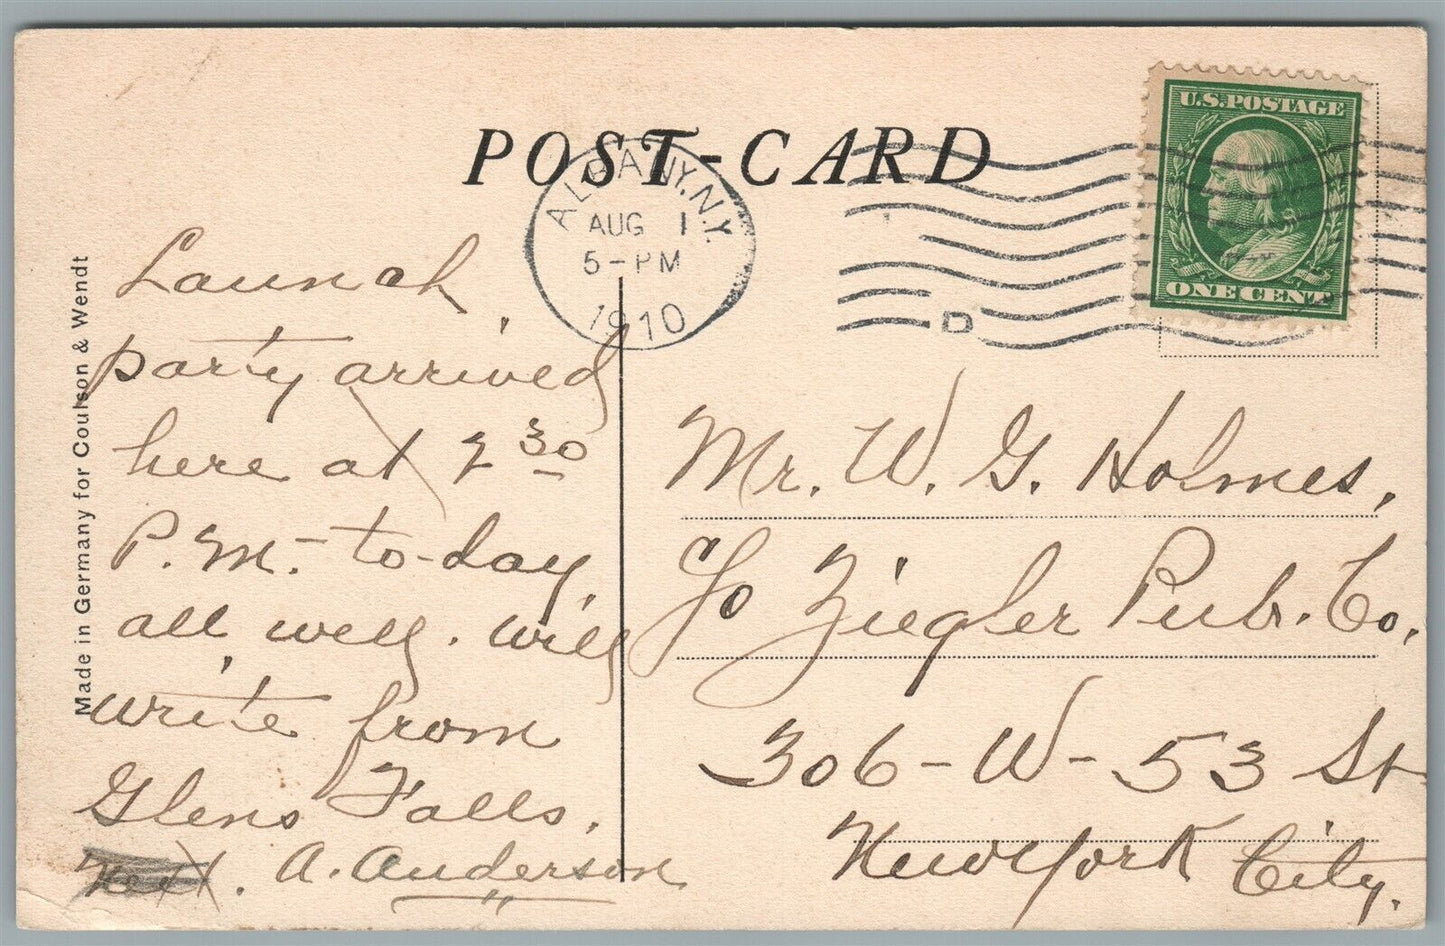 POST-CARD
ALBANY, N.Y.
AUG 1
5-PM
1910
D
U.S. POSTAGE
ONE CENT
Made in Germany for Coulson & Wendt
Launch
party arrived
here at 2 30
P.M. - to-day,
all well. will
write from
Glens Falls.
A. Anderson
Mr. W. G. Holmes,
c/o Ziegler Pub. Co.
306 - W - 53 St
New York City.